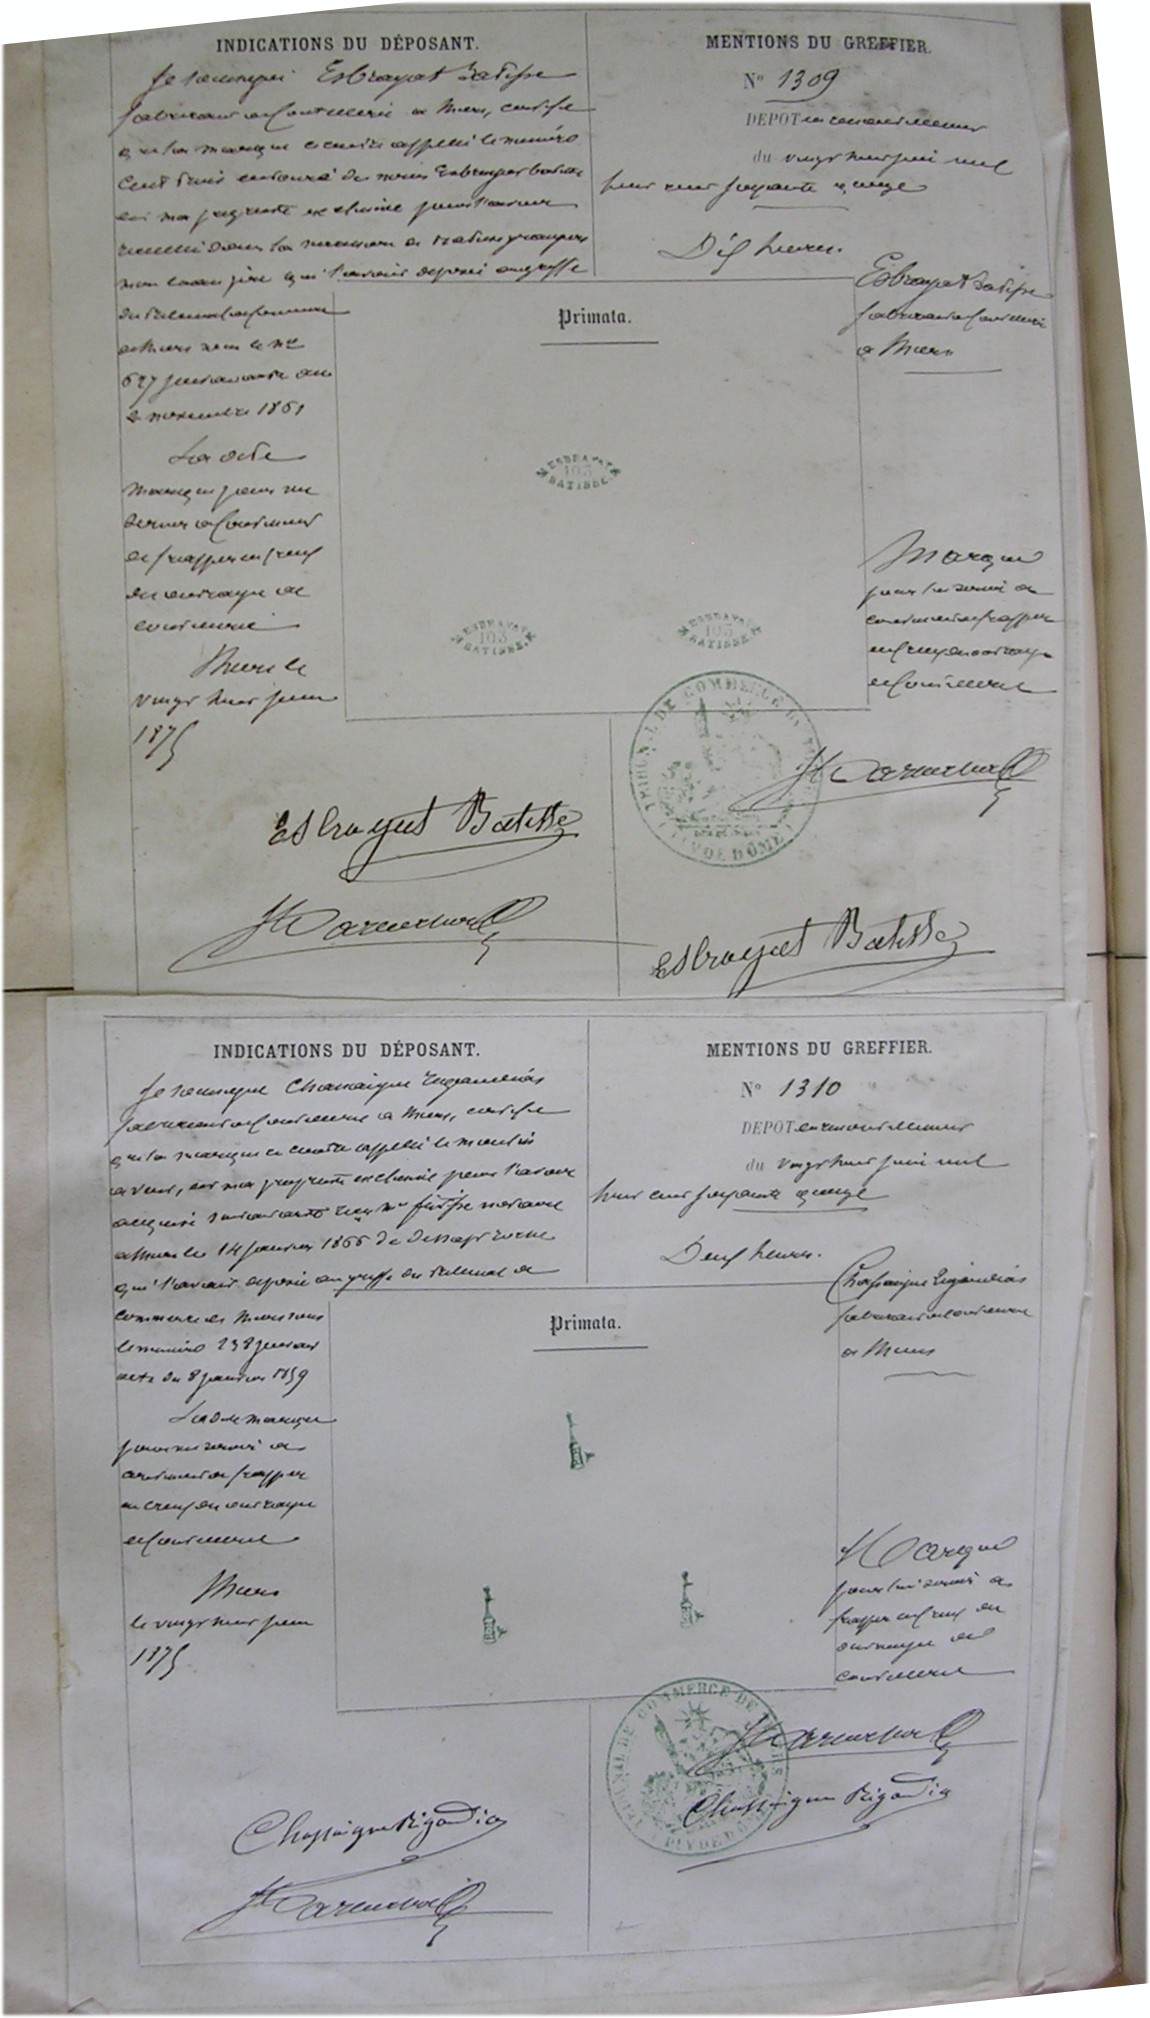 INDICATIONS DU DÉPOSANT.
Je soussigné Esbrayat Batisse
fabricant de Coutellerie à Thiers, certifie
que la marque ci contre appellée le numéro
Cent trois entouré des noms Esbrayat batisse
est ma propriété exclusive pour l'avoir
recueilli dans la succession de
mon beau père qui l'avait déposée au greffe
du tribunal de Commerce
de Thiers sous le no
627 suivant acte du
2 novembre 1861
La dite
marque pour me
servir à Continuer
de frapper en creux
des ouvrages de
coutellerie
Thiers le
vingt huit juin
1875
Esbrayat Batisse
MENTIONS DU GREFFIER.
No 1309
DEPOT en renouvellement
du vingt huit juin mil
huit cent soixante quinze
Dix heures.
Esbrayat Batisse
fabricant de Coutellerie
à Thiers
Primata.
ESBRAYAT
103
BATISSE.
ESBRAYAT
103
BATISSE.
ESBRAYAT
103
BATISSE.
Marque
pour lui servir à
continuer de frapper
en creux des ouvrages
de Coutellerie
TRIBUNAL DE COMMERCE DE THIERS
(PUY DE DÔME)
Esbrayat Batisse
INDICATIONS DU DÉPOSANT.
Je soussigné Chassaigne Rigaudias
fabricant de Coutellerie à Thiers, certifie
que la marque ci contre appellée le moulin
à vent, est ma propriété exclusive pour l'avoir
acquise suivant acte reçu Me notaire
à Thiers le 14 janvier 1866 de
qui l'avait déposée au greffe du tribunal de
commerce de Thiers sous
le numéro 238 suivant
acte du 8 janvier 1859
La dite marque
pour me servir à
continuer de frapper
en creux des ouvrages
de Coutellerie
Thiers
le vingt huit juin
1875
Chassaigne Rigaudias
MENTIONS DU GREFFIER.
No 1310
DEPOT en renouvellement
du vingt huit juin mil
huit cent soixante quinze
Deux heures.
Chassaigne Rigaudias
fabricant de Coutellerie
à Thiers
Primata.
Marque
pour lui servir à
frapper en creux des
ouvrages de
coutellerie
TRIBUNAL DE COMMERCE DE THIERS
(PUY DE DÔME)
Chassaigne Rigaudias